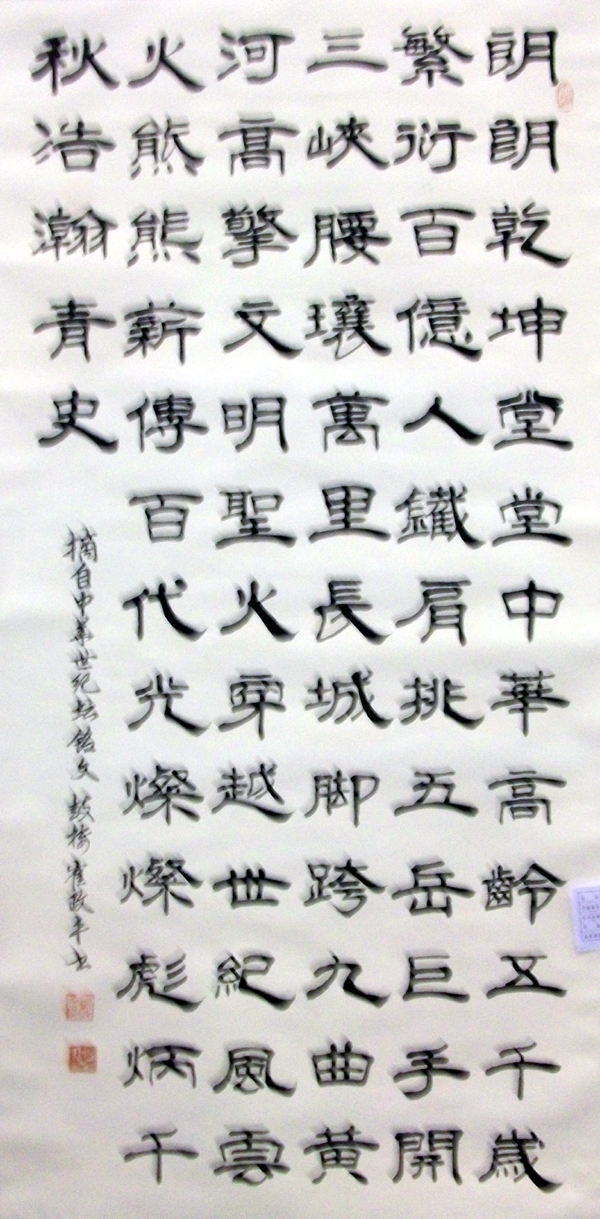 朗朗乾坤堂堂中華高齡五千歲
繁衍百億人鐵肩挑五岳巨手開
三峽腰壤萬里長城脚跨九曲黃
河高擎文明聖火穿越世紀風雲
火熊熊薪傳百代光燦燦彪炳千
秋浩瀚青史
摘自中華世纪坛铭文 鼓楼 崔政平书